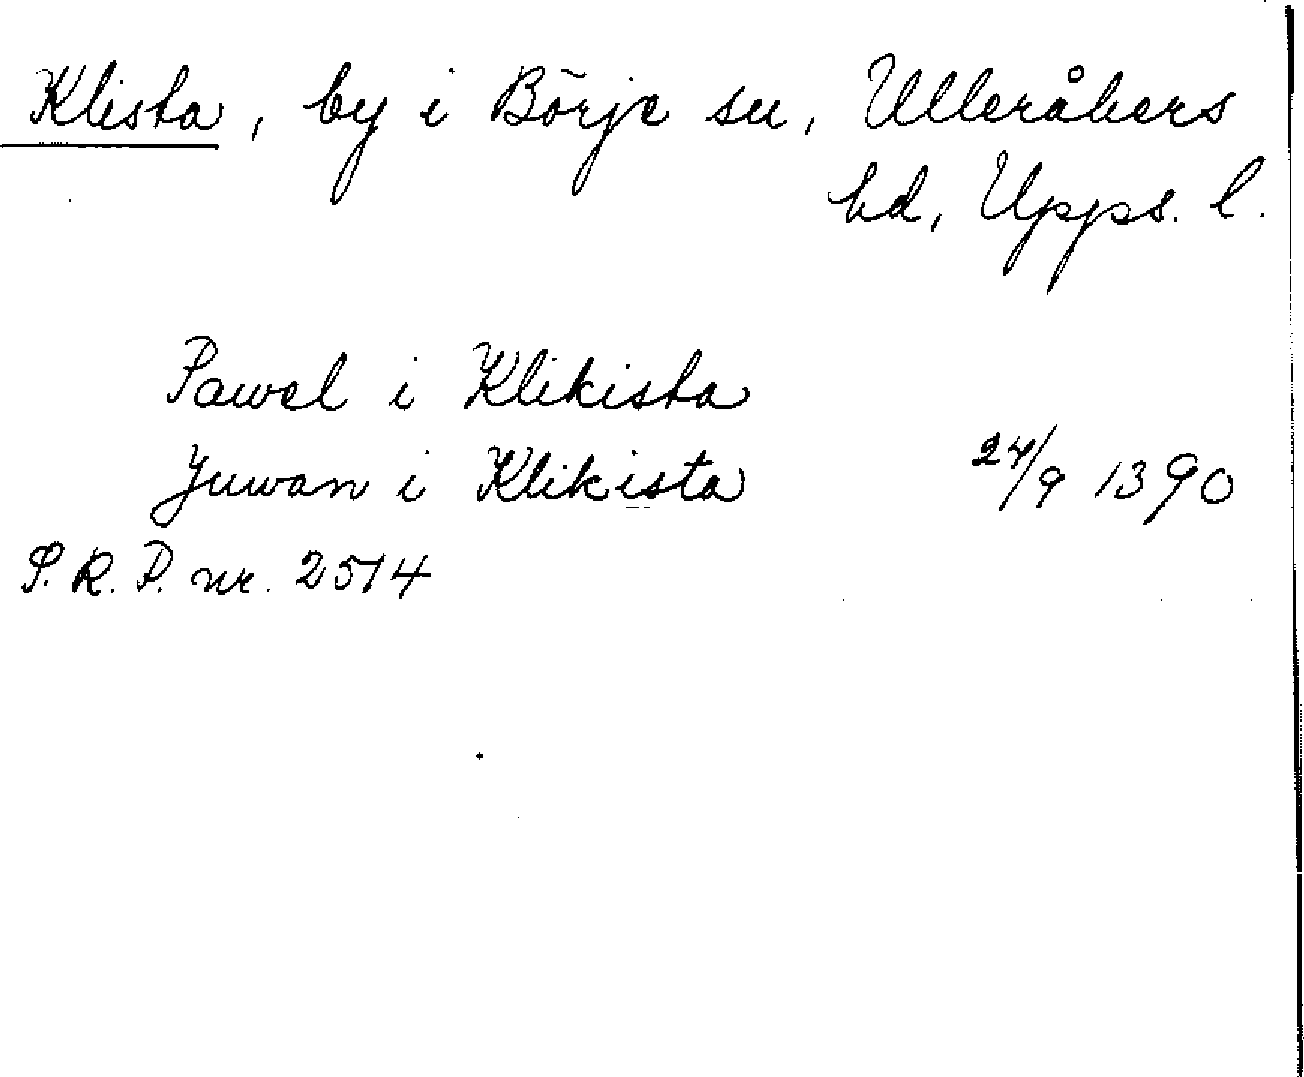 Klista, by i Börje sn, Ulleråkers
hd, Upps. l.
Pawel i Klikista
Juwan i Klikista 24/9 1390
S. R. P. nr. 2514